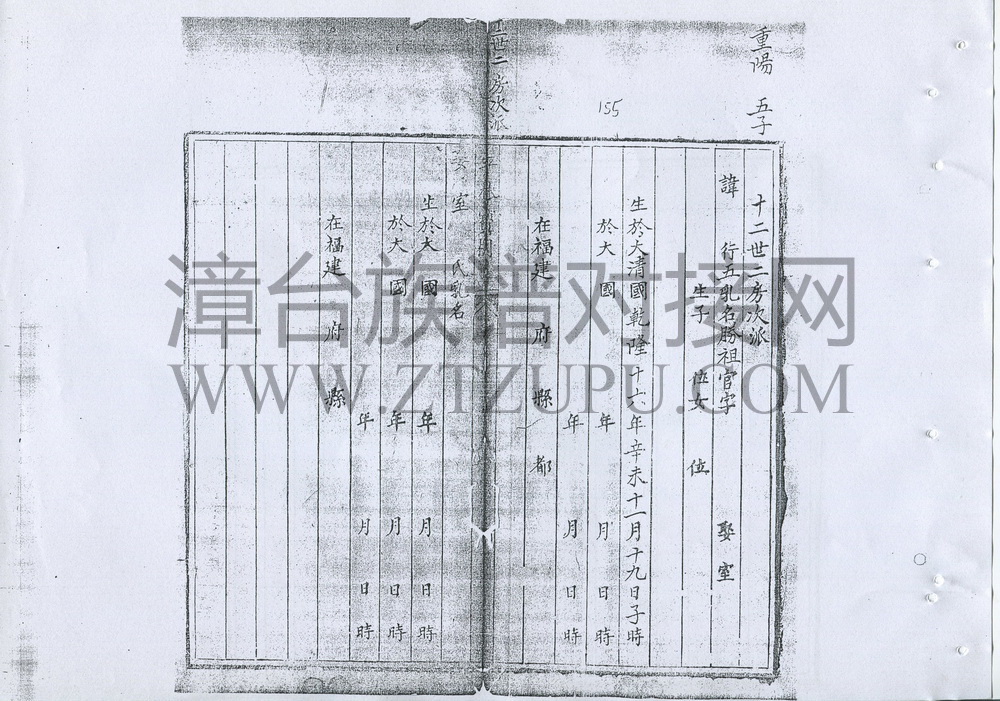 重陽 五子
155
十二世二房次派
諱 行五乳名勝祖官字 娶室
生子 位女 位
生於大清國乾隆十六年辛未十一月十九日子時
於大 國 年 月 日 時
年 月 日 時
在福建 府 縣 都
世二房次派
室 氏乳名
生於大 國 年 月 日 時
於大 國 年 月 日 時
年 月 日 時
在福建 府 縣
漳台族谱对接网
WWW.ZTZUPU.COM